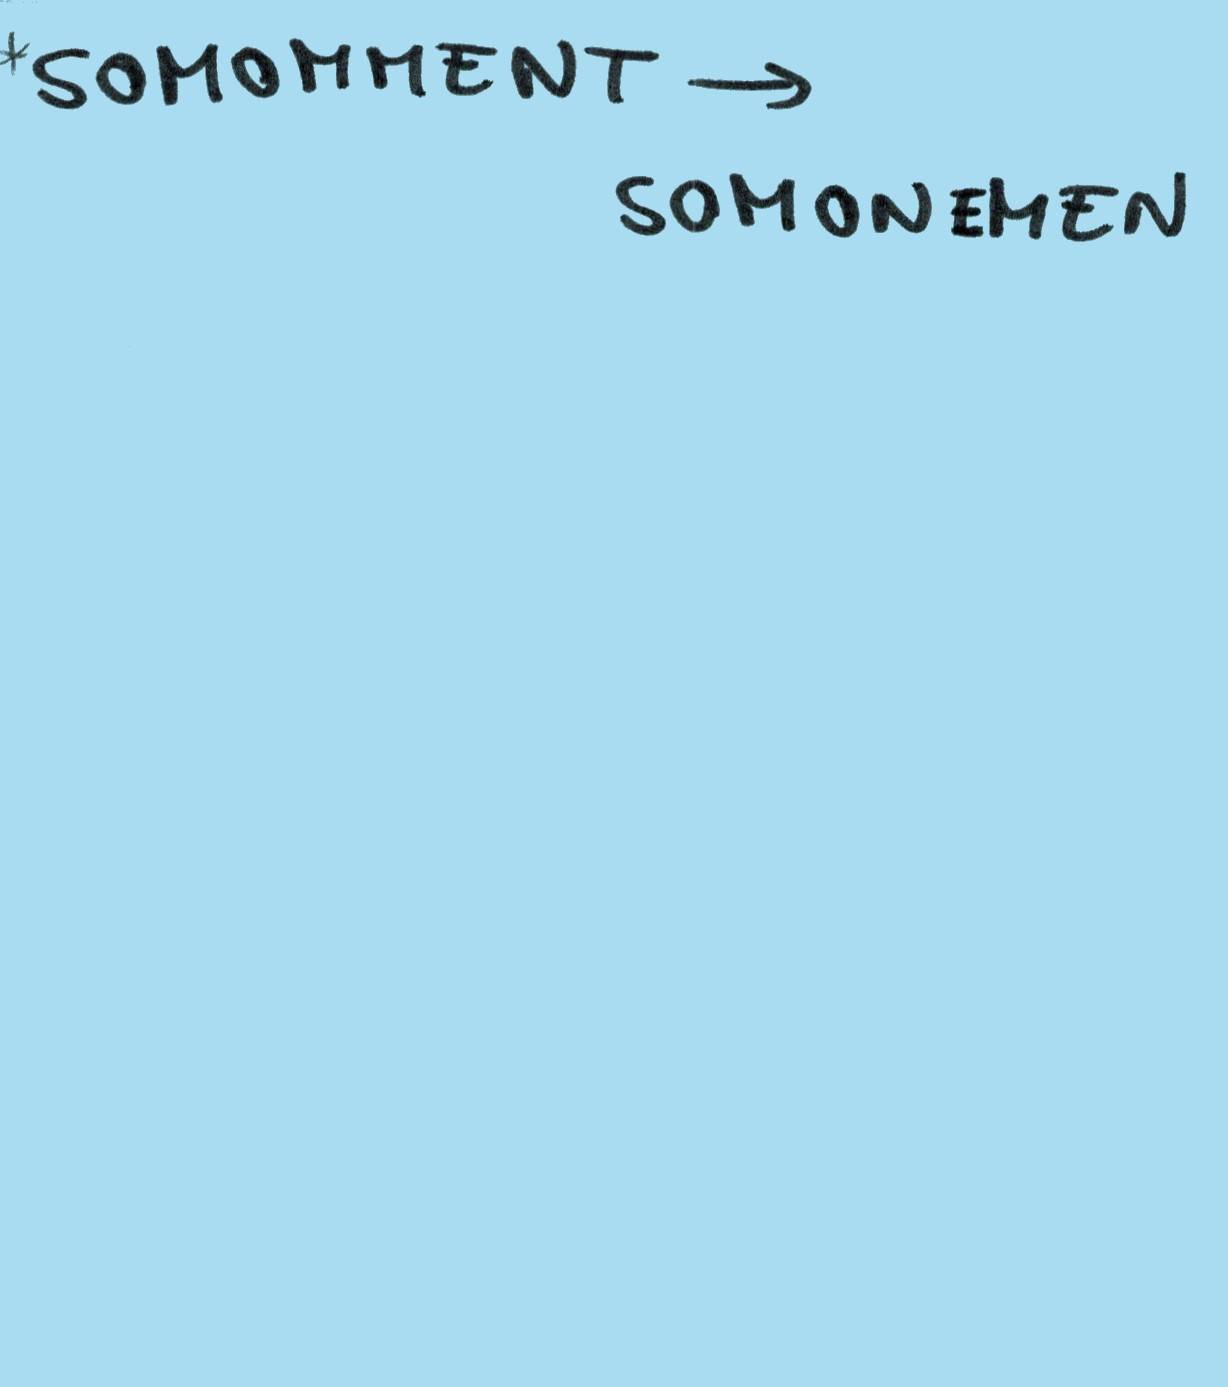 *SOMOMMENT →
SOMONEMEN